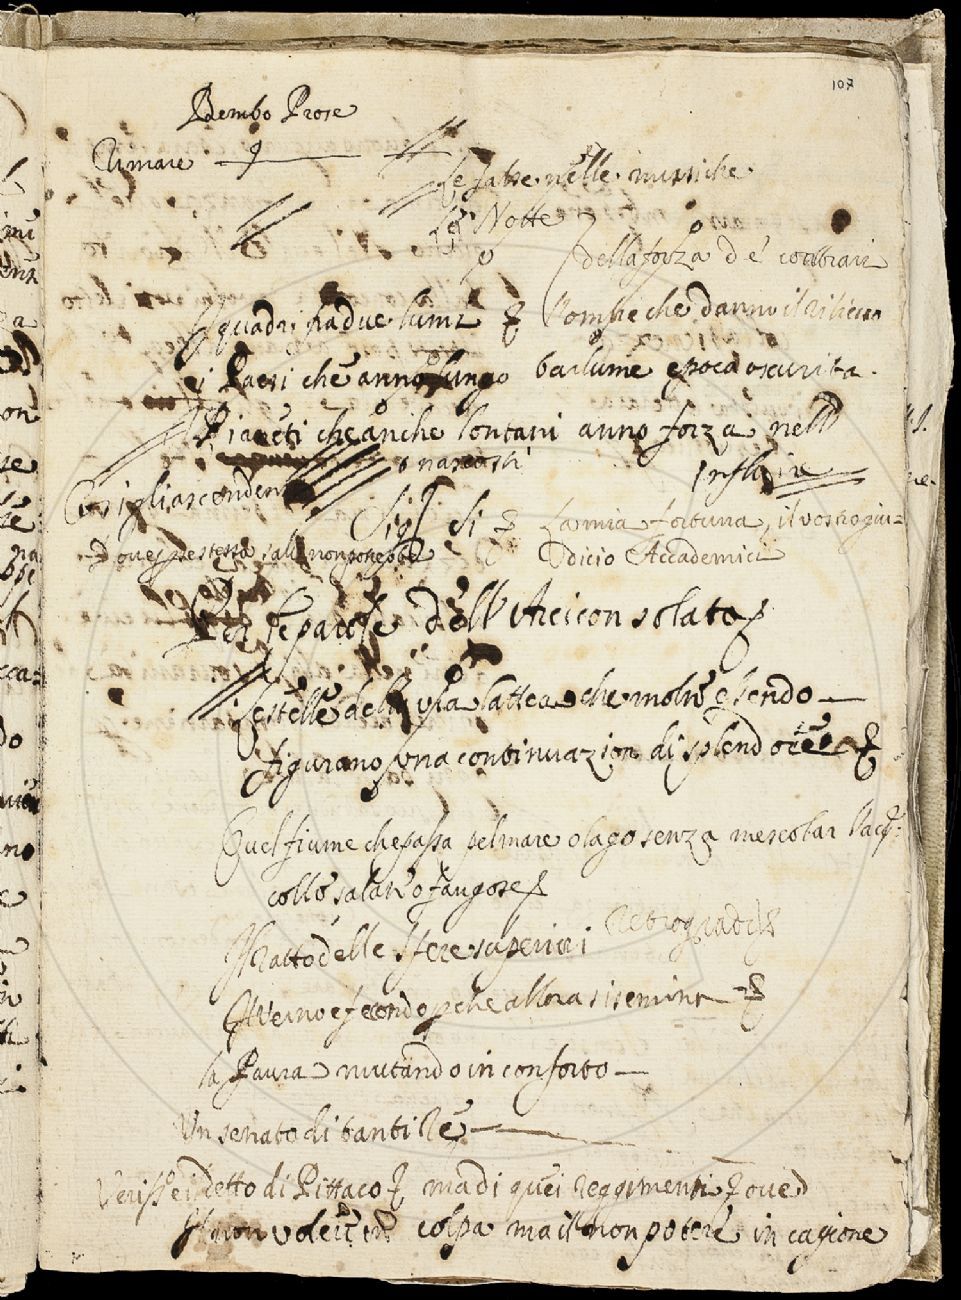 107
Bembo Prose
Rimare
Le false nelle musiche
La Notte
della forza de contrari
I quadri fra due lumi
l'ombre che danno il rilievo
ei Paesi che anno lungo barlume e poca oscurita.
Pianeti che anche lontani anno forza nell
o nascosti
influire
Cosi gli ascendenti
Sig.ri si
La mia fortuna, il vostro giu=
dove per se stessa sali non potrebbe
dicio Accademici
Per se parole dell'Arciconsolato
Le stelle della via lattea che molte essendo
figurano una continuazion di splendore
Quel fiume che passa pel mare o lago senza mescolar l'acq:
colle salate o fangose
Il ratto delle sfere superiori
Retrogradi
Averno e fecondo perche allora si semina
la Paura mutando in conforto
Un senato di tanti Re
Veriss.o ei detto di Pittaco ma di quei Reggimenti ove
Il non voler colpa ma il non potere in cagione